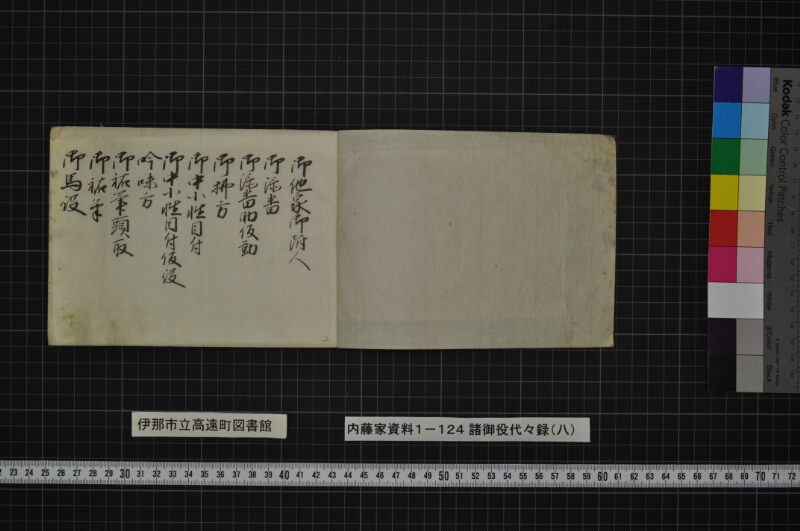 御他家御附人
御添書
御添書助仮勤
御拂方
御中小性目付
御中小性目付仮役
吟味方
御祐筆頭取
御祐筆
御馬役
伊那市立高遠町図書館
内藤家資料1－124 諸御役代々録(八)
Kodak Color Control Patches
Blue
Cyan
Green
Yellow
Red
Magenta
White
3/Color
Black
23 24 25 26 27 28 29 30 31 32 33 34 35 36 37 38 39 40 41 42 43 44 45 46 47 48 49 50 51 52 53 54 55 56 57 58 59 60 61 62 63 64 65 66 67 68 69 70 71 72